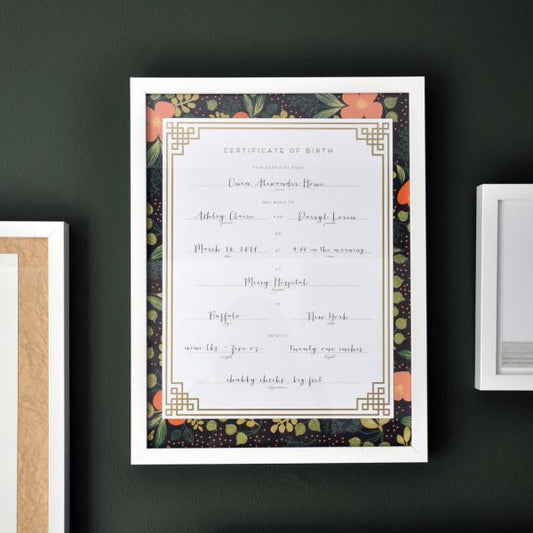 CERTIFICATE OF BIRTH
THIS CERTIFIES THAT
Owen Alexander Howe
WAS BORN TO
Ashley Claire AND Darryl Loren
ON
March 26, 2019 AT 9:00 in the morning
at
Mercy Hospital
hospital
IN
Buffalo New York
city state
DETAILS
nine lbs - five oz. twenty one inches
weight length
chubby cheeks, big feet